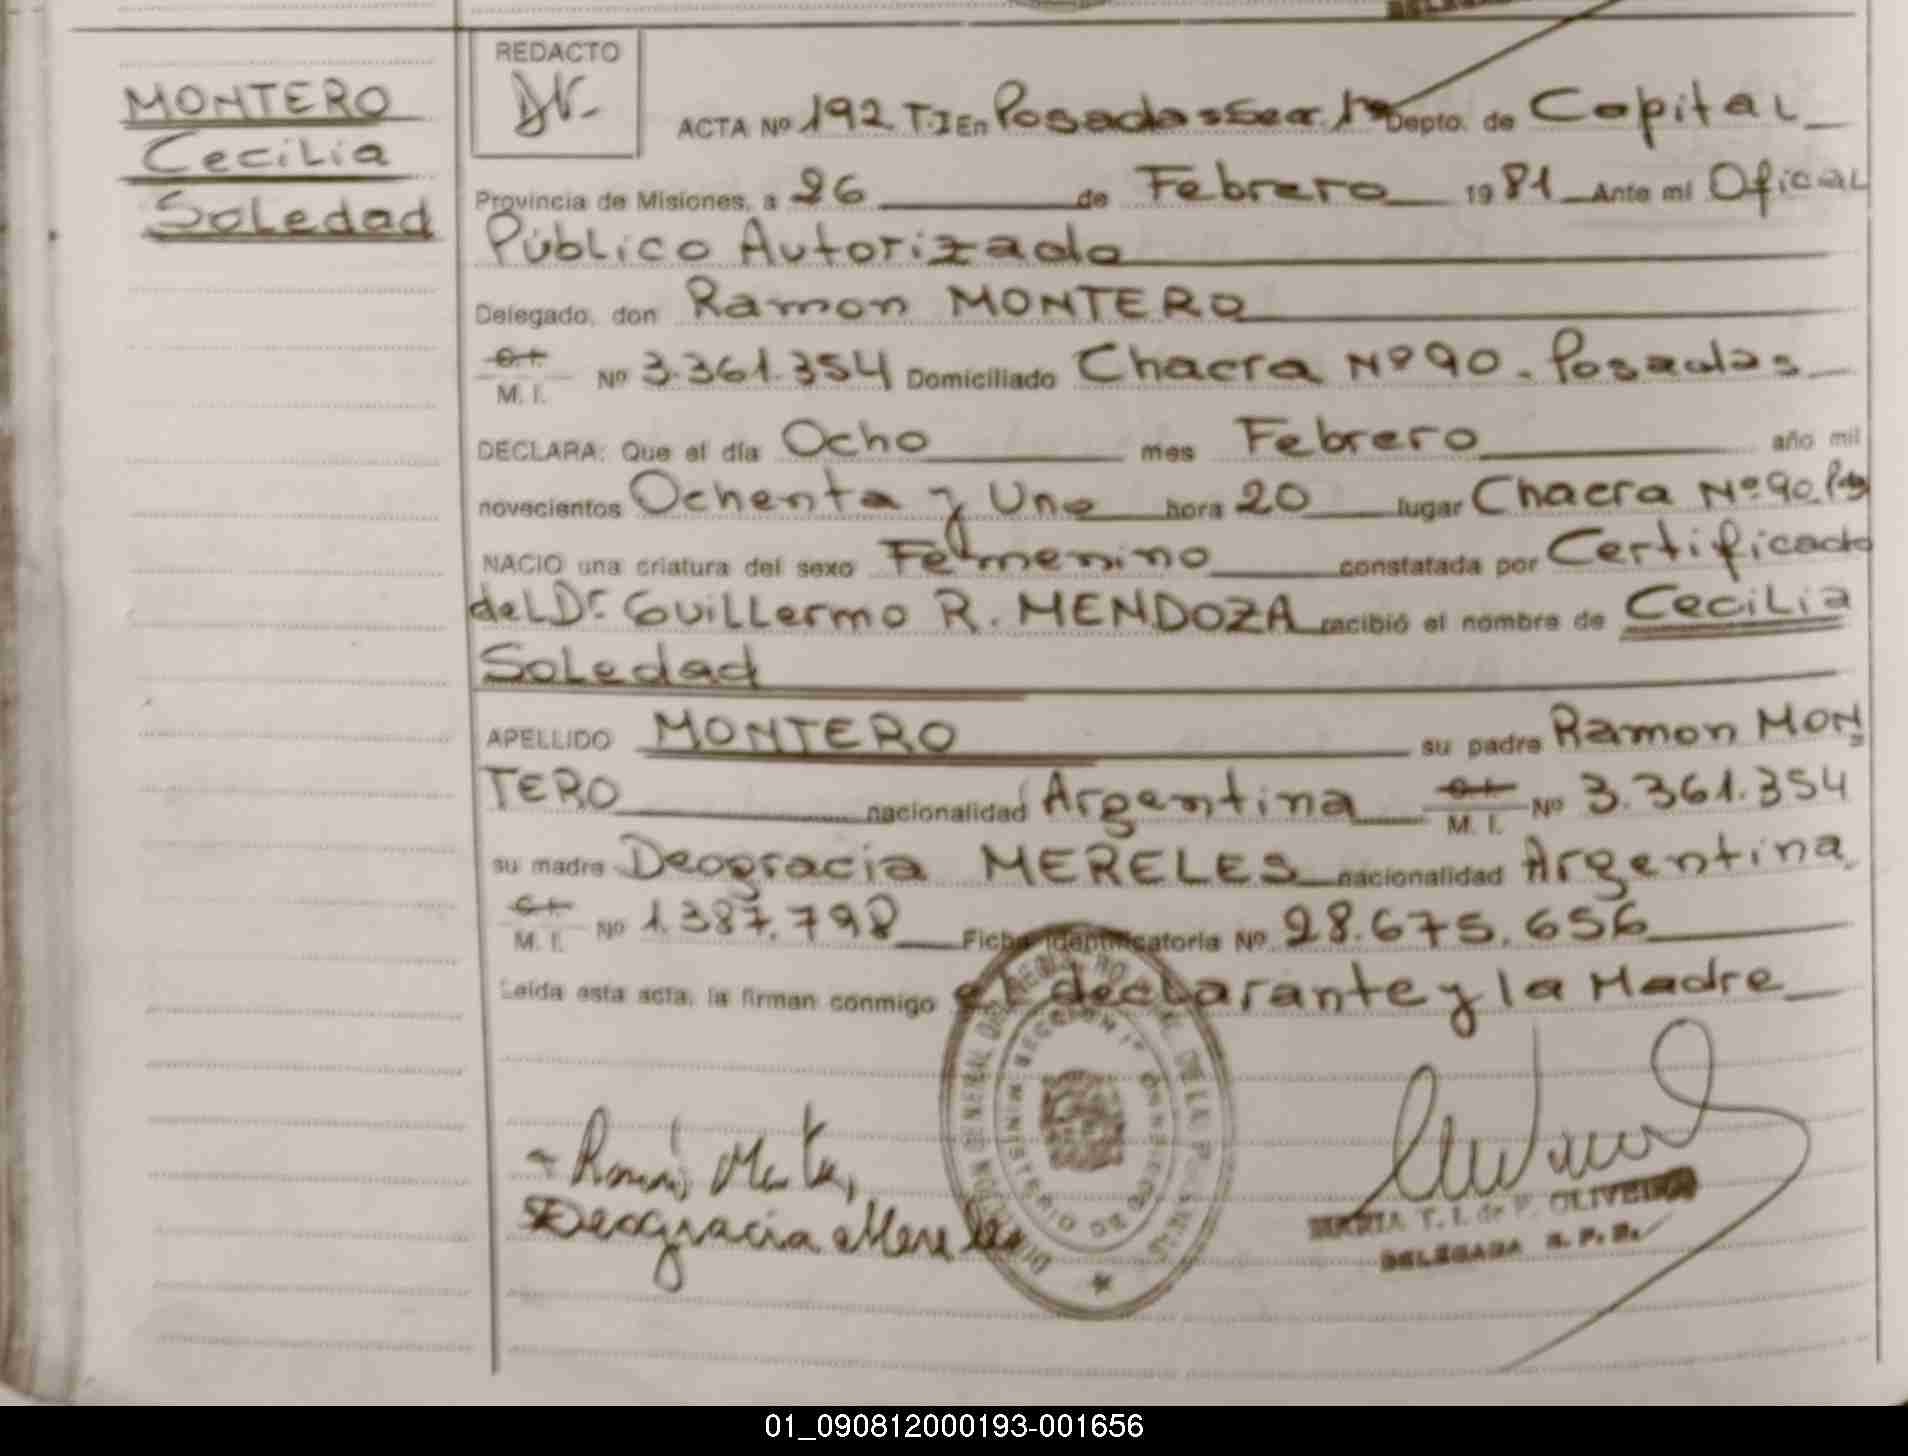 MONTERO
Cecilia
Soledad
REDACTO
ACTA Nº 192 T.I En Posadas Sec. 1ª Depto. de Capital
Provincia de Misiones, a 26 de Febrero 1981 Ante mí Oficial
Público Autorizado
Delegado, don Ramon MONTERO
C.I.
M. I. Nº 3.361.354 Domiciliado Chacra Nº 90. Posadas
DECLARA: Que el día Ocho mes Febrero año mil
novecientos Ochenta y Uno hora 20 lugar Chacra Nº 90. Pdas
NACIO una criatura del sexo Femenino constatada por Certificado
del Dr. Guillermo R. MENDOZA recibió el nombre de Cecilia
Soledad
APELLIDO MONTERO su padre Ramon MON
TERO nacionalidad Argentina C.I. M. I. Nº 3.361.354
su madre Deogracia MERELES nacionalidad Argentina
C.I.
M. I. Nº 1.387.798 Ficha Identificatoria Nº 28.675.656
Leída esta acta, la firman conmigo el declarante y la Madre
Deogracia Mereles
MARIA T. I. de P. OLIVEIRA
DELEGADA R. P. P.
01_090812000193-001656